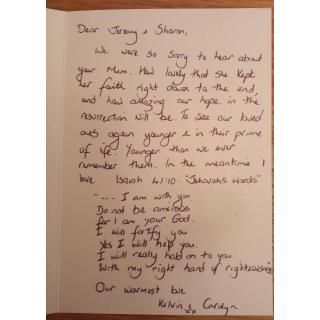 Dear Jeremy & Sharon,
We were so sorry to hear about
your Mum. How lovely that she kept
her faith right down to the end,
and how amazing our hope in the
resurrection will be To see our loved
ones again younger & in their prime
of life. Younger than we ever
remember them. In the meantime I
love Isaiah 41:10 - "Jehovahs Words"
"---- I am with you
Do not be anxious
for I am your God.
I will fortify you
Yes I will help you.
I will really hold on to you
With my right hand of righteousness
Our warmest love
Kelvin & Carolyn
xx